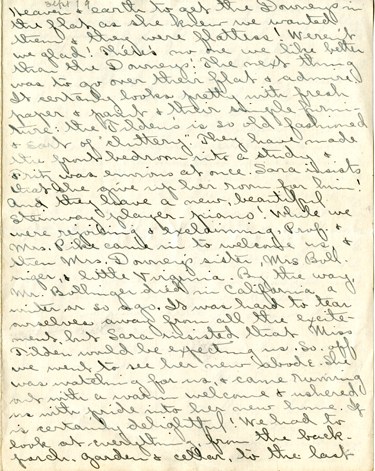 Sept 19
Heaven & earth to get the Downeys in
the flat, as she knew we wanted
them & they were flatless! Weren't
we glad! There's no one we like better
than the Downeys! The next thing
was to go over their flat & admire.
It certainly looks pretty with fresh
paper & paint & their simple furni-
ture: the Tilden's is so old fashioned
& sort of cluttery. They have made
the front bedroom into a study &
it was envious at once. Sara insists
that she give up her room for him!
And they have a new, beautiful
Steinway player-piano! While we
were rejoicing & exclaiming, Prof. &
Mrs. came in to welcome us, &
then Mrs. Downey's sister, Mrs Boll-
inger, & little Virginia. By the way,
Mr. Bollinger died in California a
winter or so ago. It was hard to tear
ourselves away from all the excite-
ment, but Sara insisted that Miss
Tilden would be expecting us. So, off
we went to see her new abode. She
was watching for us, & came running
out with a warm welcome & ushered
us with pride into her new home. It
is certainly delightful! We had to
look at everything, from the back-
porch, garden & cellar, to the last